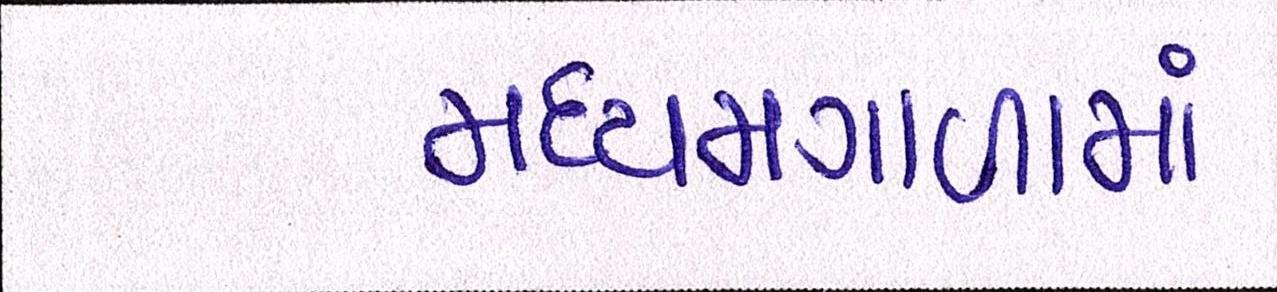 મધ્યમગાળામાં